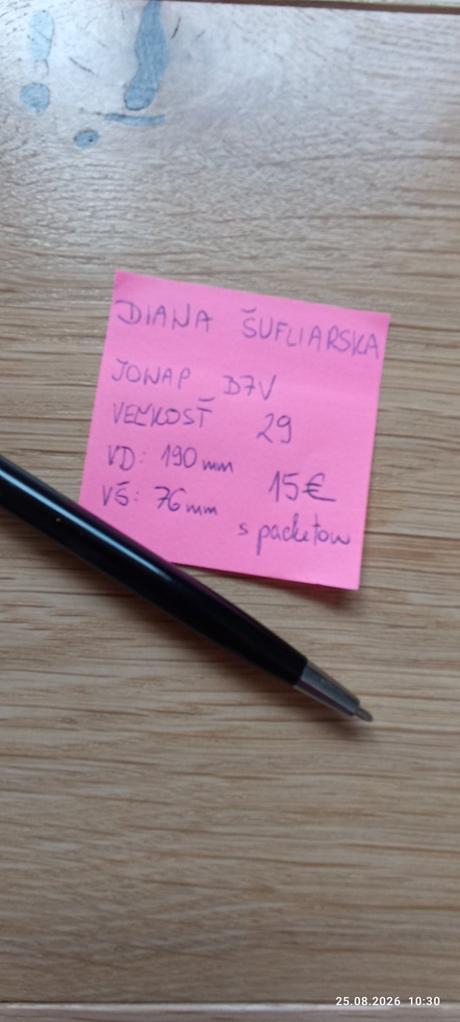 DIANA ŠUFLIARSKA
JONAP B7V
VEĽKOSŤ 29
VD: 190 mm
15€
VŠ: 76 mm
s packetou
25.08.2026 10:30